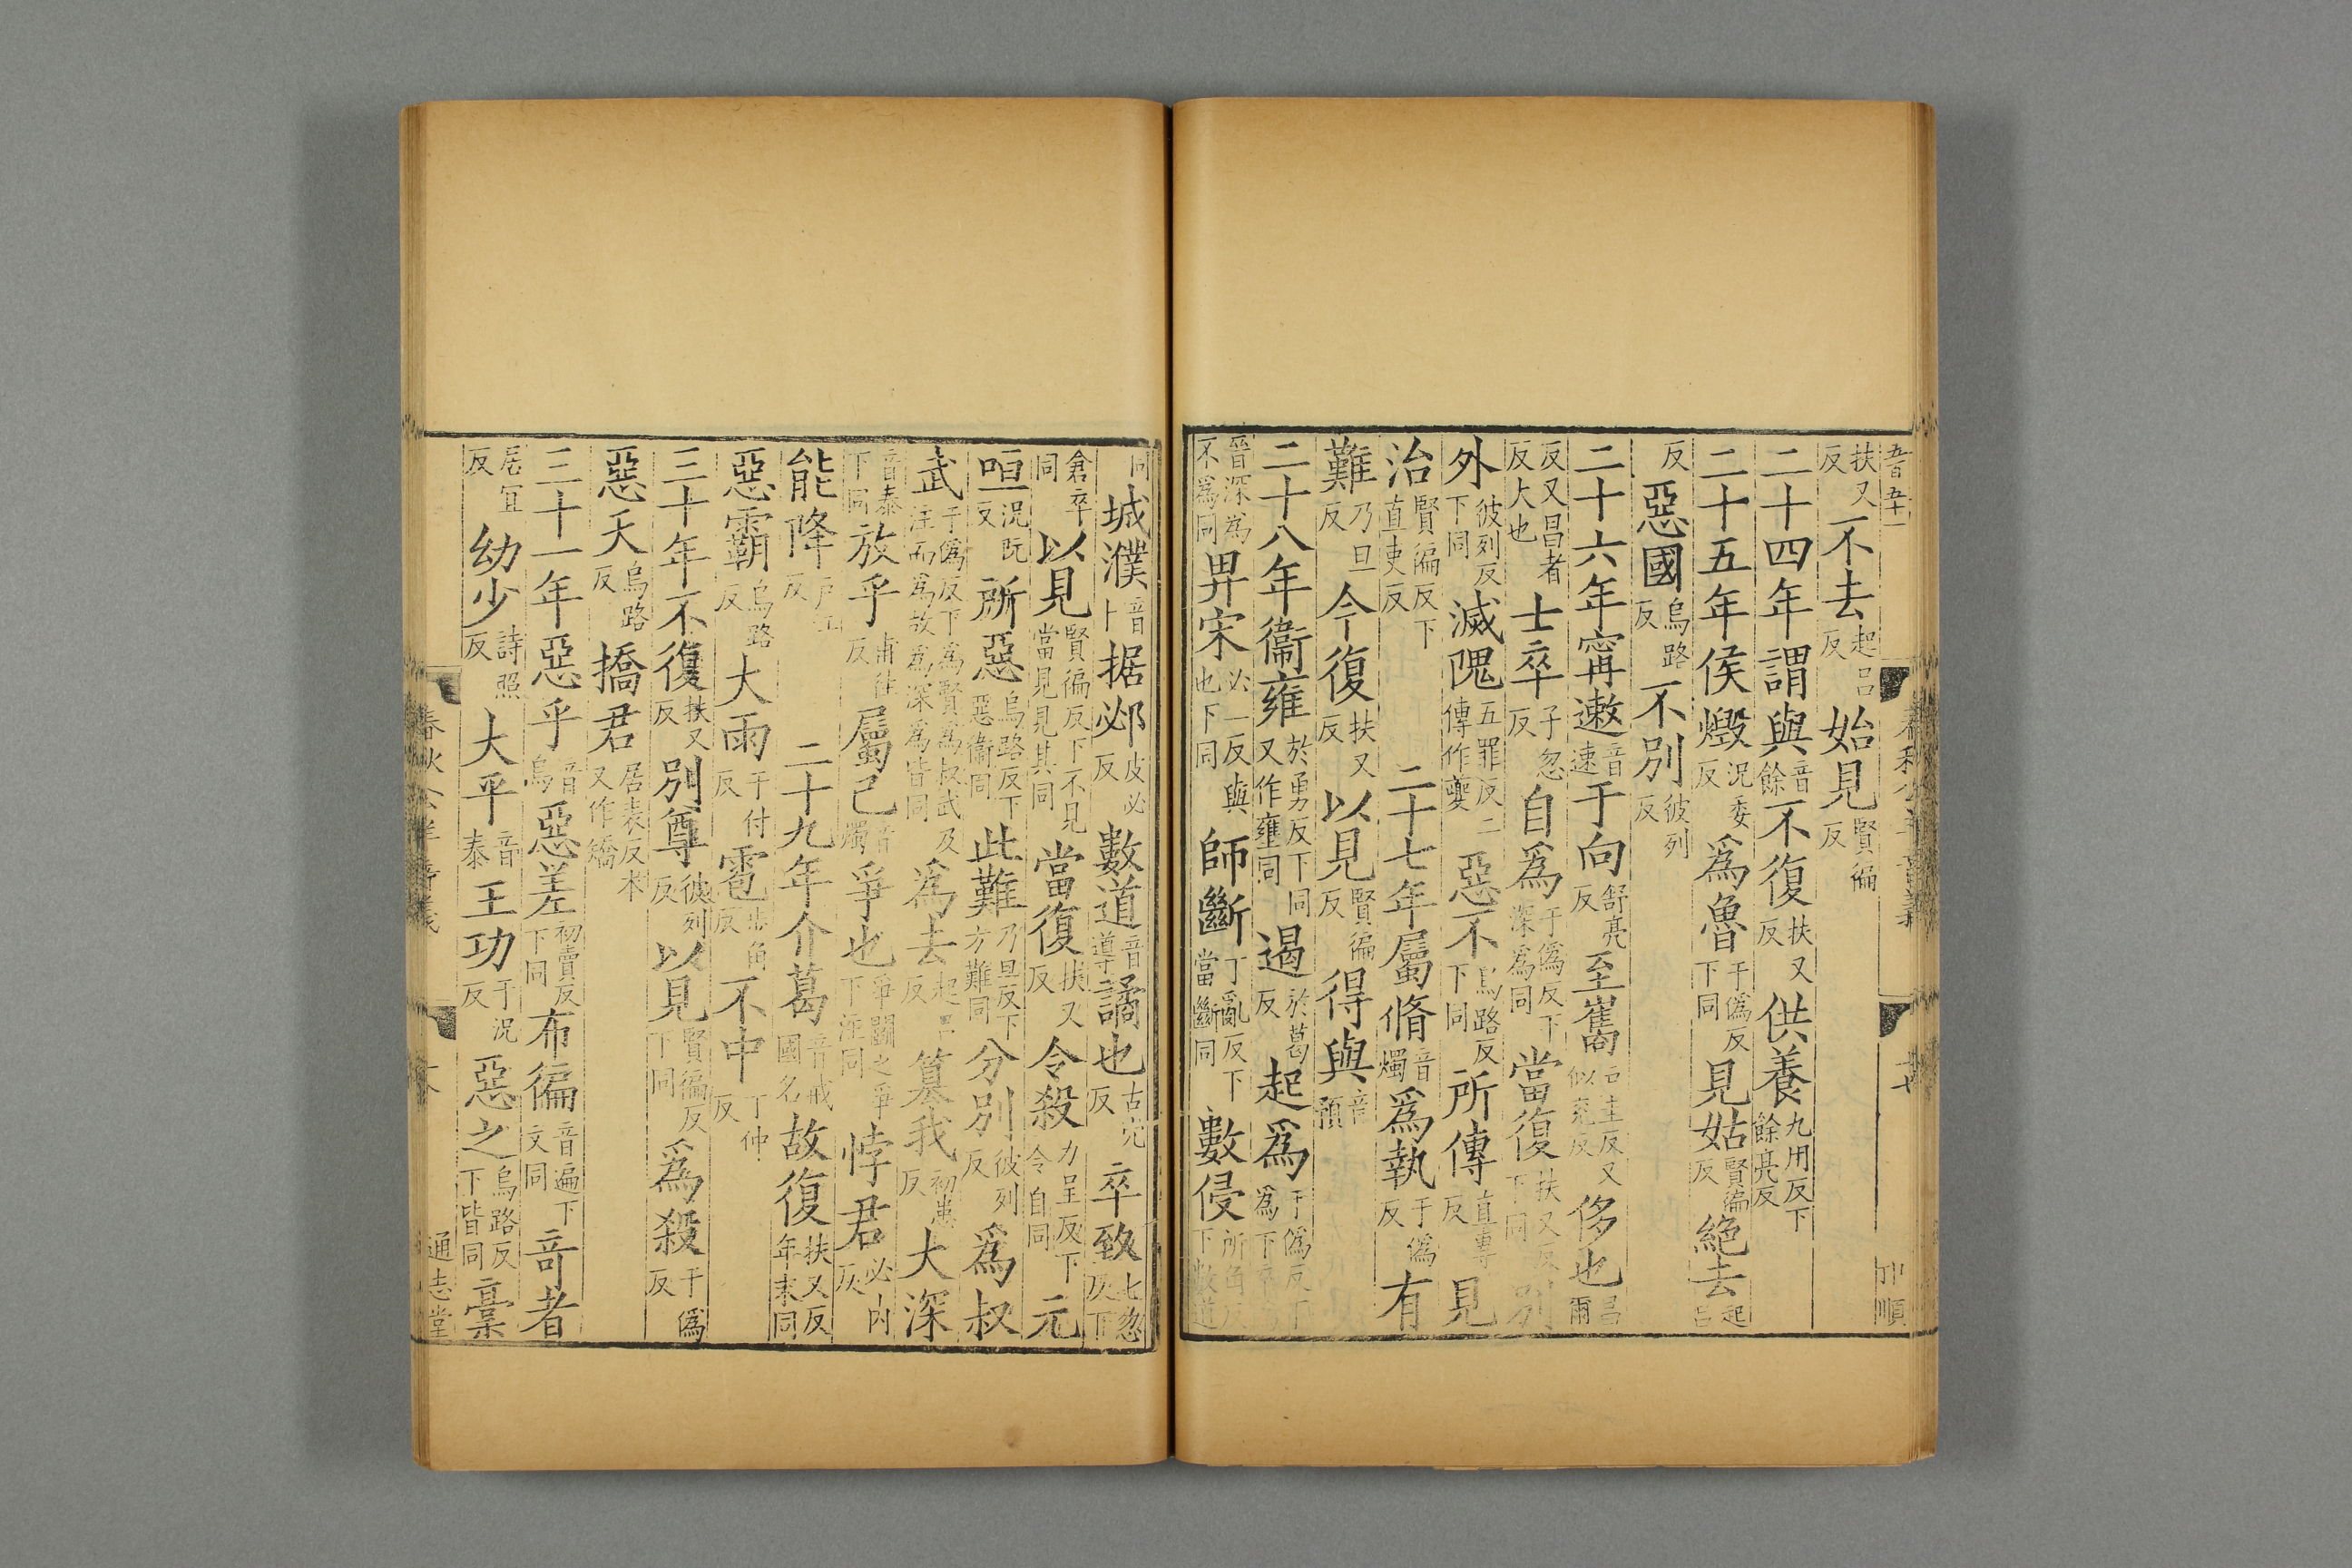 扶又反不去起呂反始見賢徧反
二十四年謂與音餘不復扶又反供養九用反下餘亮反
二十五年侯燬況委反爲魯于僞反下同見姑賢徧反絕去起呂
反惡國烏路反不別彼列反
二十六年甯遬音速于向舒亮反至巂戶圭反又似兗反侈也昌爾
反又昌者反大也士卒子忽反自爲于僞反下深爲同當復扶又反下同別
外彼列反下同滅隗五罪反二傳作夔惡不烏路反下同所傳直專反見
治賢徧反下直吏反二十七年屬脩音燭爲執于僞反有
難乃旦反今復扶又反以見賢徧反得與音預
二十八年衞雍於勇反下同又作壅同遏於葛反起爲于僞反下爲下
晉深爲不爲同畀宋必二反與也下同師斷丁亂反下當斷同數侵所角反下數道
同城濮音卜据邲皮必反數道音導譎也古穴反卒致七忽反下
倉卒同以見賢徧反下不見當見見其同當復扶又反令殺力呈反下令自同元
咺況阮反所惡烏路反下惡衞同此難乃旦反下方難同分別彼列反爲叔
武于僞反下爲賢爲叔武及注而爲故爲深爲皆同爲去起呂反篡我初患反大深
音泰下同放乎甫往反屬己音燭爭也爭鬬之爭下注同悖君必內反
能降戶江反二十九年介葛音戒國名故復扶又反年末同
惡霸烏路反大雨于付反雹步角反不中丁仲反
三十年不復扶又反別尊彼列反以見賢徧反下同爲殺于僞反
惡天烏路反撟君居表反本又作矯
三十一年惡乎音烏惡差初賣反下同布徧音遍下文同奇者
居宜反幼少詩照反大平音泰王功于況反惡之烏路反下皆同稾
春秋公羊音義
通志堂